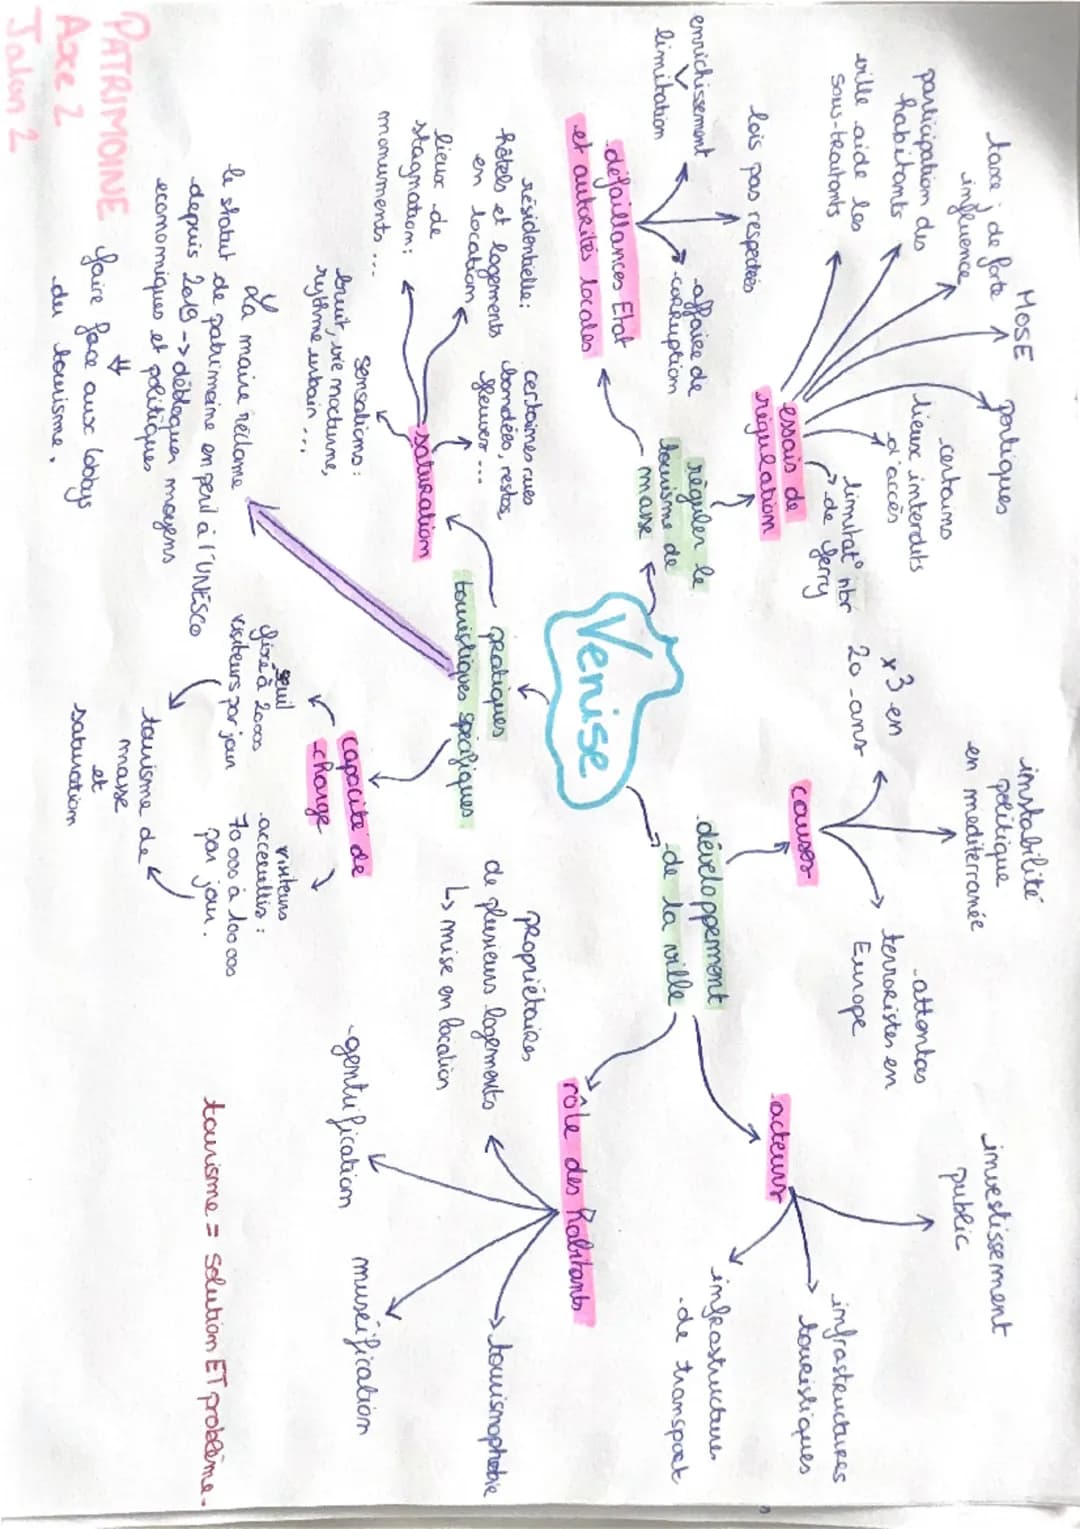 PATRIMOINE
Axe 2
Jalon 2
Venise
réguler le
tourisme de
masse
essais de
régulation
MOSE
taxe ; de forte
influence
participation des
habitants
ville aide les
sous-traitants
portiques
certains
lieux interdits
d'accès
limitat° nbr
de ferry
défaillances Etat
et autorités locales
lois pas respectées
enrichissement
>
limitation
affaire de
corruption
développement
de la ville
causes
x3 en
20 ans
instabilité
politique
en mediterranée
attentas
terroristes en
Europe
acteurs
investissement
public
infrastructures
touristiques
infrastructures
de transport
rôle des habitants
propriétaires
de plusieurs logements
↳ mise en location
gentrification
muséification
tourismophobie
pratiques
touristiques spécifiques
saturation
résidentielle:
hôtels et logements
en location
certaines rues
bondées, restos,
fleuve ...
lieux de
stagnation:
monuments ...
sensations:
bruit, vie nocturne,
rythme urbain ...
capacité de
charge
seuil
fixé à 20000
visiteurs par jour
visiteurs
accueillis:
70 000 à 100 000
par jour.
tourisme de
masse
et
saturation
La mairie réclame
le statut de patrimoine en péril à l'UNESCO
depuis 2019 -> débloquer moyens
economiques et politiques
⇓
faire face aux lobbys
du tourisme.
tourisme = solution ET problème.